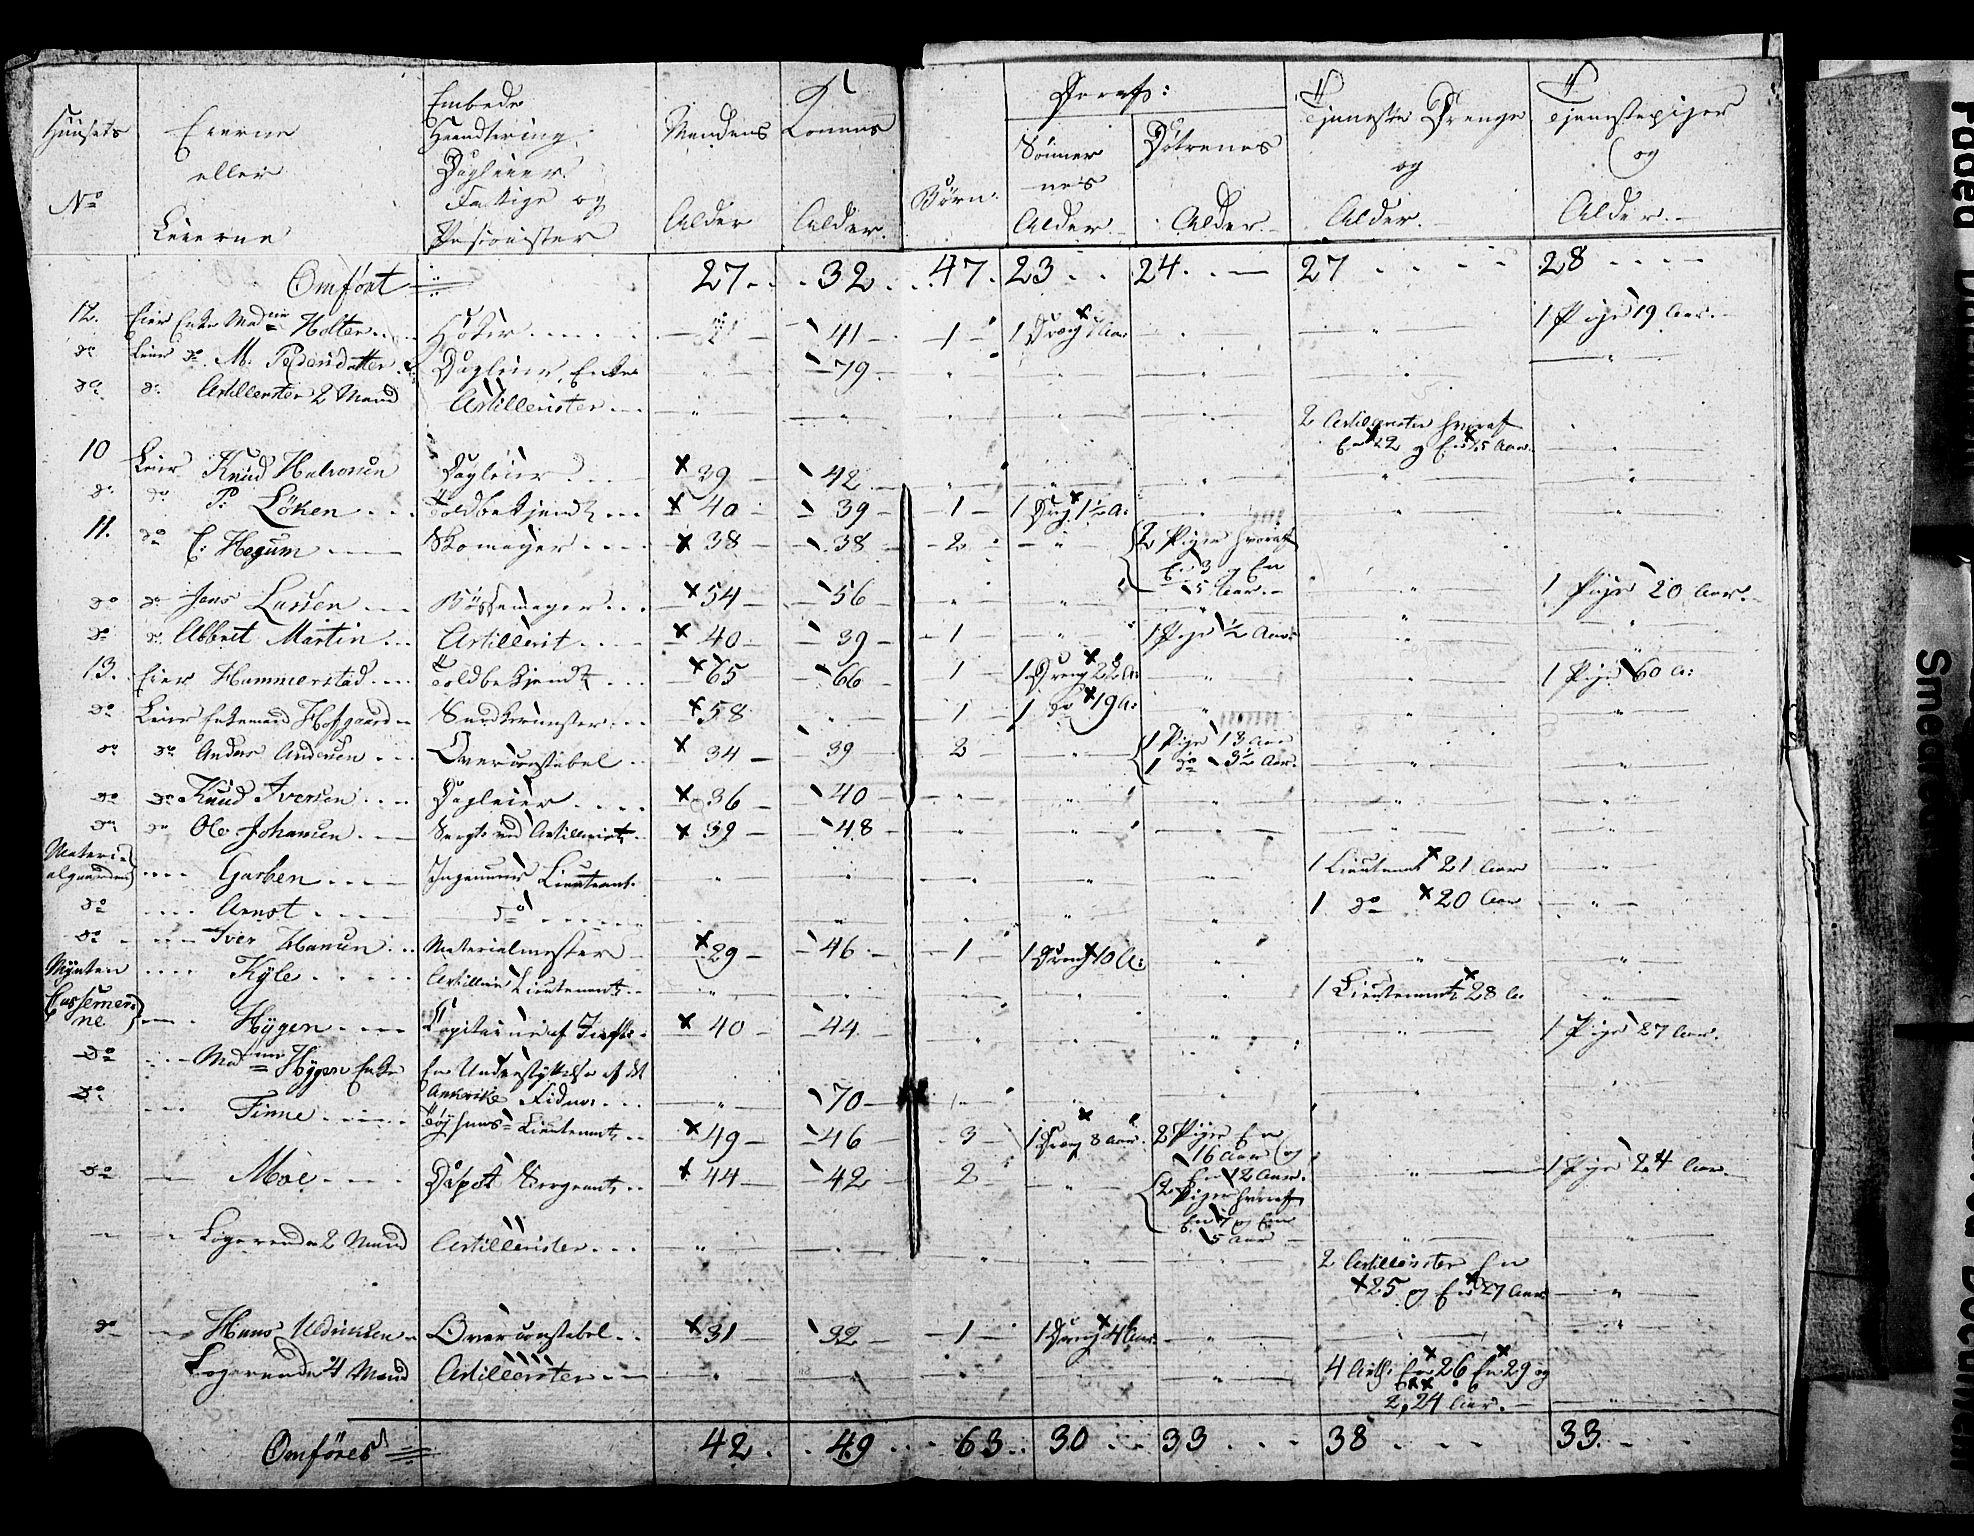 Huusets No | Eierne eller Leierne | Embede Haandtering, Dagleiere Fattige og Pensionister | Mandens Alder | Konens Alder. | Börn: | Deraf: Sönnernes Alder | Döttrenes Alder. | Tjeneste Drenge og Alder. | Tjenestepiger og Alder.
Omfört | 27 | 32 | 47 | 23 | 24 | 27 | 28
12. Eier Enke Mad Holter | Höker | 41 | 1 | 1 Dreng | 1 Pige 19 Aar.
do Leier do M. Pedersdatter | Dagleier Enke | 79
do do Artillerister 2 Mand | Artillerister | 2 Artillerister hvoraf
En 22 og En 25 Aar.
10 Leier Knud Halvorsen | Dagleier | 39 | 42
do do P. Löken | Toldbetjent | 40 | 39 | 1 | 1 Dreng 1½ A:
11. do C: Hegum | Skomager | 38 | 38 | 2 | 2 Piger hvoraf
En 3 og En
5 Aar.
do do Jens Larsen | Bössemager | 54 | 56 | 1 Pige 20 Aar.
do do Albret Martin | Artillerist | 40 | 39 | 1 | 1 Pige ½ Aar
13. Eier Hammerstad | Toldbetjent | 65 | 66 | 1 | 1 Dreng 22 A: | 1 Pige 60 A:
do Leier Enkemand Hofgaard | 58 | 1 | 1 do 19 A:
do do Anders Andersen | Overconstabel | 34 | 39 | 2 | 1 Pige 13 Aar
1 do 3½ Aar.
do do Knud Iversen | Dagleier | 36 | 40
do do Ole Johansen | Sergt: ved Artilleriet | 39 | 48
Materialgaarden Garben | Ingenieur Lieutenant | 1 Lieutenant 21 Aar
do Arnst | do | 1 do 20 Aar
do Iver Hansen | Materialmester | 29 | 46 | 1 | 1 Dreng 10 A:
Mynten Kyle | Artillerie Lieutenant | 1 Lieutenant 28 A:
Casserne Hygen | Capitaine af | 40 | 44 | 1 Pige 27 Aar.
do Mad Hygen Enke | En Understyttelse af det
70
do Finne | Töjhuus-Lieutenant | 49 | 46 | 3 | 1 Dreng 8 Aar. | 2 Piger En
16 Aar og
En 12 Aar.
do Moe | Depot Sergeant | 44 | 42 | 2 | 2 Piger hvoraf | 1 Pige 24 Aar
En 7 og En
5 Aar
Logerende 2 Mand | Artillerister | 2 Artillerister En
25 og En 27 Aar
do Hans | Overconstabel | 31 | 32 | 1 | 1 Dreng 4 Aar.
Logerende 4 Mand | Artillerister | 4 Artill: En 26 En 29 og
2, 24 Aar.
Omföres | 42 | 49 | 63 | 30 | 33 | 38 | 33